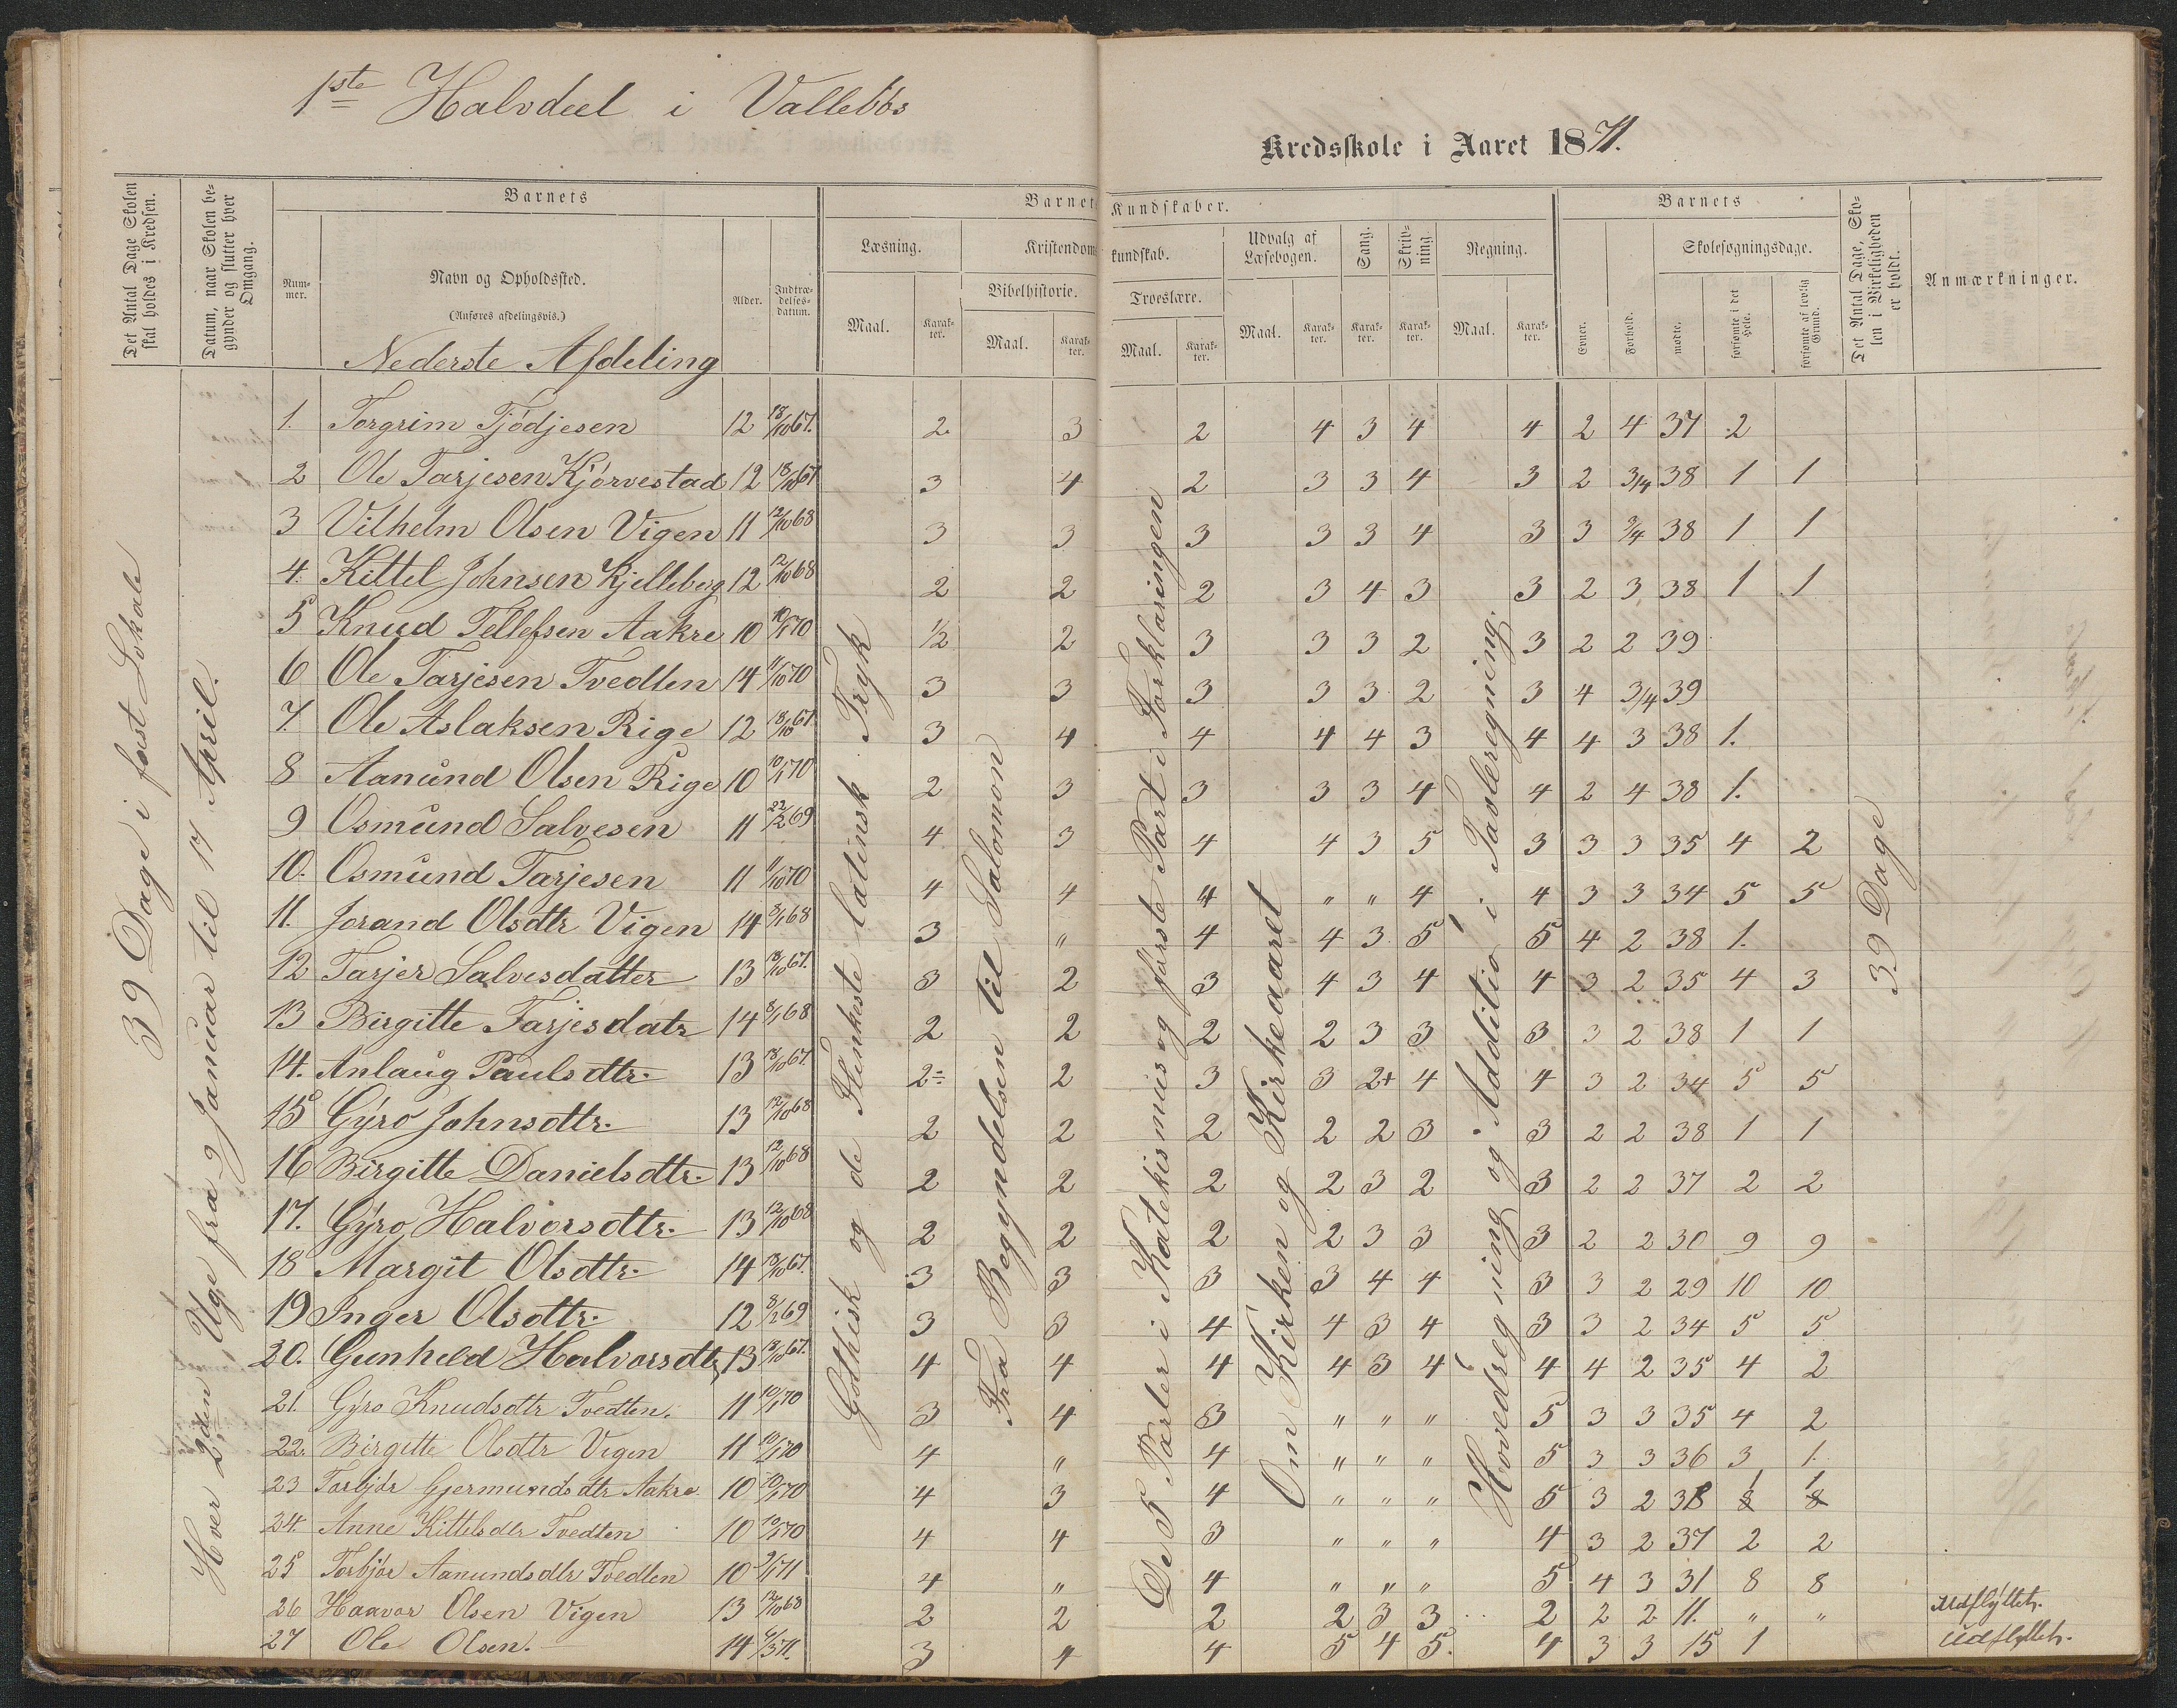 1ste Halvdeel i Vallebøs
Kredsskole i Aaret 1871.
Det Antal Dage Skolen skal holdes i Kredsen.
Datum, naar Skolen begynder og slutter hver Omgang.
Barnets
Num-mer.
Navn og Opholdssted.
(Anføres afdelingsvis.)
Alder.
Indtræ-delses-datum.
Barnets Kundskaber.
Læsning.
Maal.
Karak-ter.
Kristendomskundskab.
Bibelhistorie.
Maal.
Karak-ter.
Troeslære.
Maal.
Karak-ter.
Udvalg af Læsebogen.
Maal.
Karak-ter.
Sang.
Karak-ter.
Skriv-ning.
Karak-ter.
Regning.
Maal.
Karak-ter.
Barnets
Evner.
Forhold.
Skolesøgningsdage.
mødte.
forsømte i det Hele.
forsømte af lovlig Grund.
Det Antal Dage, Sko-len i Virkeligheden er holdt.
Anmærkninger.
Nederste Afdeling
39 Dage i fast Lokale
Hver 2den Uge fra 9 Januar til 17 April.
Gothisk og de Flenkeste latinsk Tryk
Fra Begyndelsen til Salomon
De 5 Parter i Katekismus og første Part i Forklaringen
Om Kirken og Kirkeaaret
Hovedregning og Additio i Tavleregning.
39 Dage
1. Torgrim Tjødjesen 12 18/10 67. 2. 3 2 4 3 4 4 2 4 37 2
2 Ole Tarjesen Kjørvestad 12 18/10 67 3 4 2 3 3 4 3 2 3/4 38 1 1
3 Vilhelm Olsen Vigen 11 12/10 68 3 3 3 3 3 4 3 3 3/4 38 1 1
4. Kittel Johnsen Kjelleberg 12 12/10 68 2 2 2 3 4 3 3 2 3 38 1 1
5 Knud Tellefsen Aakre 10 10/1 70 1/2 2 3 3 3 2 3 2 2 39
6 Ole Tarjesen Tvedten 14 11/10 70 3 3 3 3 3 2 3 4 3/4 39
7. Ole Aslaksen Rige 12 18/10 67. 3 4 4 4 4 3 4 4 3 38 1.
8 Aanund Olsen Rige 10 10/1 70 2 3 3 3 3 4 4 2 4 38 1.
9 Osmund Salvesen 11 22/2 69 4 3 4 4 3 5 3 3 3 35 4 2
10. Osmund Tarjesen 11 11/10 70 4 4 4 " " 4 4 3 3 34 5 5
11. Jorand Olsdtr Vigen 14 8/1 68 3 " 4 4 3 5 5 4 2 38 1.
12 Tarjer Salvesdatter 13 18/10 67. 3 2 3 4 3 4 4 3 2 35 4 3
13 Birgitte Tarjesdatr 14 8/1 68 2 2 2 2 3 3 3 3 2 38 1 1
14. Anlaug Paulsdtr. 13 18/10 67. 2÷ 2 3 3 2+ 4 4 3 2 34 5 5
15 Gyro Johnsdtr. 13 12/10 68 2 2 2 2 2 3 3 2 2 38 1 1
16 Birgitte Danielsdtr. 13 12/10 68 2 2 2 2 3 2 3 2 2 37 2 2
17. Gyro Halvorsdtr. 13 12/10 68 2 2 2 2 3 3 3 2 2 30 9 9
18 Margit Olsdtr. 14 18/10 67. 3 3 3 3 4 4 3 3 2 29 10 10
19 Inger Olsdtr. 12 8/2 69 3 3 4 4 3 4 3 3 2 34 5 5
20. Gunheld Halvorsdtr 13 18/10 67. 4 4 4 4 3 4 4 4 2 35 4 2
21. Gyro Knudsdtr Tvedten. 11 10/1 70 3 4 3 " " " 5 3 3 35 4 2
22. Birgitte Olsdtr Vigen 11 10/1 70 4 " 4 " " " 5 3 3 36 3 1.
23 Torbjör Gjermundsdtr Aakre 10 10/1 70 4 3 4 " " " 5 3 2 38 1 1
24. Anne Kittelsdtr Tvedten 10 10/1 70 4 4 3 " " " 4 3 2 37 2 2
25 Torbjör Aanundsdtr Tvedten 10 9/1 71 4 " 4 " " " 5 4 3 31 8 8
26 Haavor Olsen Vigen 13 12/10 68 2 2 2 2 3 3 2 2 2 11. " " Udflyttet.
27 Ole Olsen. 14 4/3 71. 3 4 4 5 4 5. 4 3 3 15 1 Udflyttet.